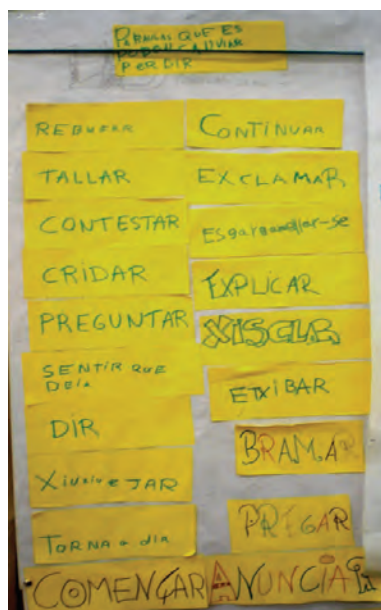 PARAULAS QUE ES
PODEN CANVIAR
PER DIR
REBUFAR
TALLAR
CONTESTAR
CRIDAR
PREGUNTAR
SENTIR QUE
DEIA
DIR
XIUXIEJAR
TORNA a dir
CONTINUAR
EXCLAMAR
Esgargamellar-se
EXPLICAR
XISCLAR
ETXIBAR
BRAMAR
PREGAR
COMENÇAR ANUNCIAR